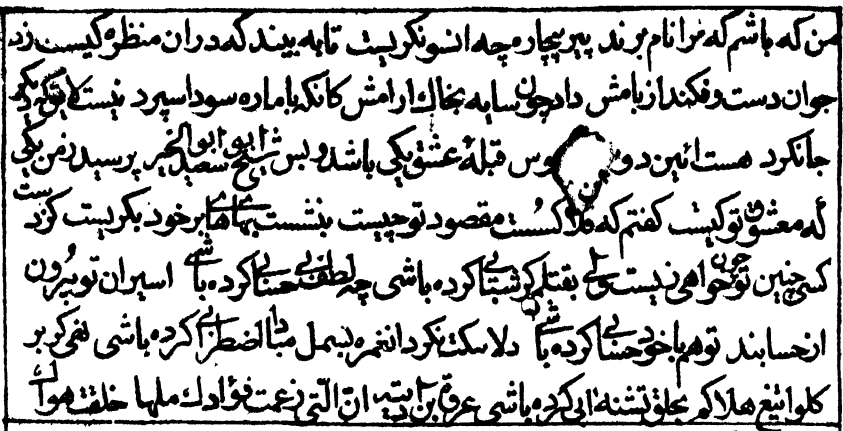 من که باشم که مرا نام برند پیر بیچاره چه انسو نکریست تا به بیند که دران منظره کیست زد
جوان دست و فکند از بامش داد چون سایه بخاك ارامش کانکه باما ره سودا سپرد نیست لایق که دیکر
جا نکرد هست ائین دو وس قبلهٔ عشق یکی باشد و بس شیخ ابو سعید ابو الخیر پرسید زمن یکی
که معشوق تو کیست کفتم که فلا کسست مقصود تو چیست بنشست بهایهای بر خود بکریست کز دست
کسی چنین تو چون خواهی زیست بقتلم کر شتابی کرده باشی چه لطف بی حسابی کرده باشی اسیران تو بیرون
از حسابند تو هم با خود حسابی کرده باشی دلا سکت نکرد انغمره بسمل مبادا اضطرابی کرده باشی نهی کر بر
کلوا تیغ هلاکم بحلق تشنه ابی کرده باشی عروة بن اذینه ان التی زعمت فؤادك ملها خلقت هواك